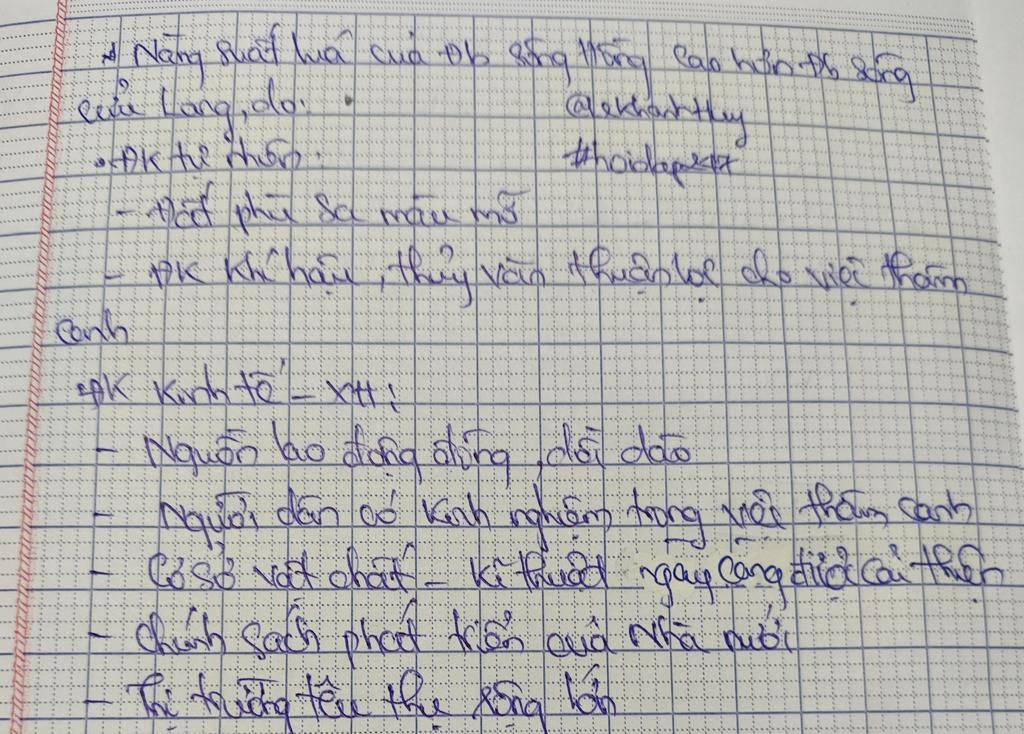 * Năng suất luá cuả đb sông Hồng cao hơn đb sông
cửu Long, do:
@lekhanhhuy
• ĐK tự nhiên:
#hoidap247
- Đất phù sa màu mỡ
- ĐK khí hậu, thủy văn thuận lợi cho việc thâm
canh
* ĐK Kinh tế - XH:
- Nguồn lao động đông, dồi dào
- Người dân có kinh nghiệm trong việc thâm canh
- Cơ sở vật chất - kĩ thuật ngày càng được cải thiện
- chính sách phát triển cuả Nhà nước
- Thị trường tiêu thụ rộng lớn